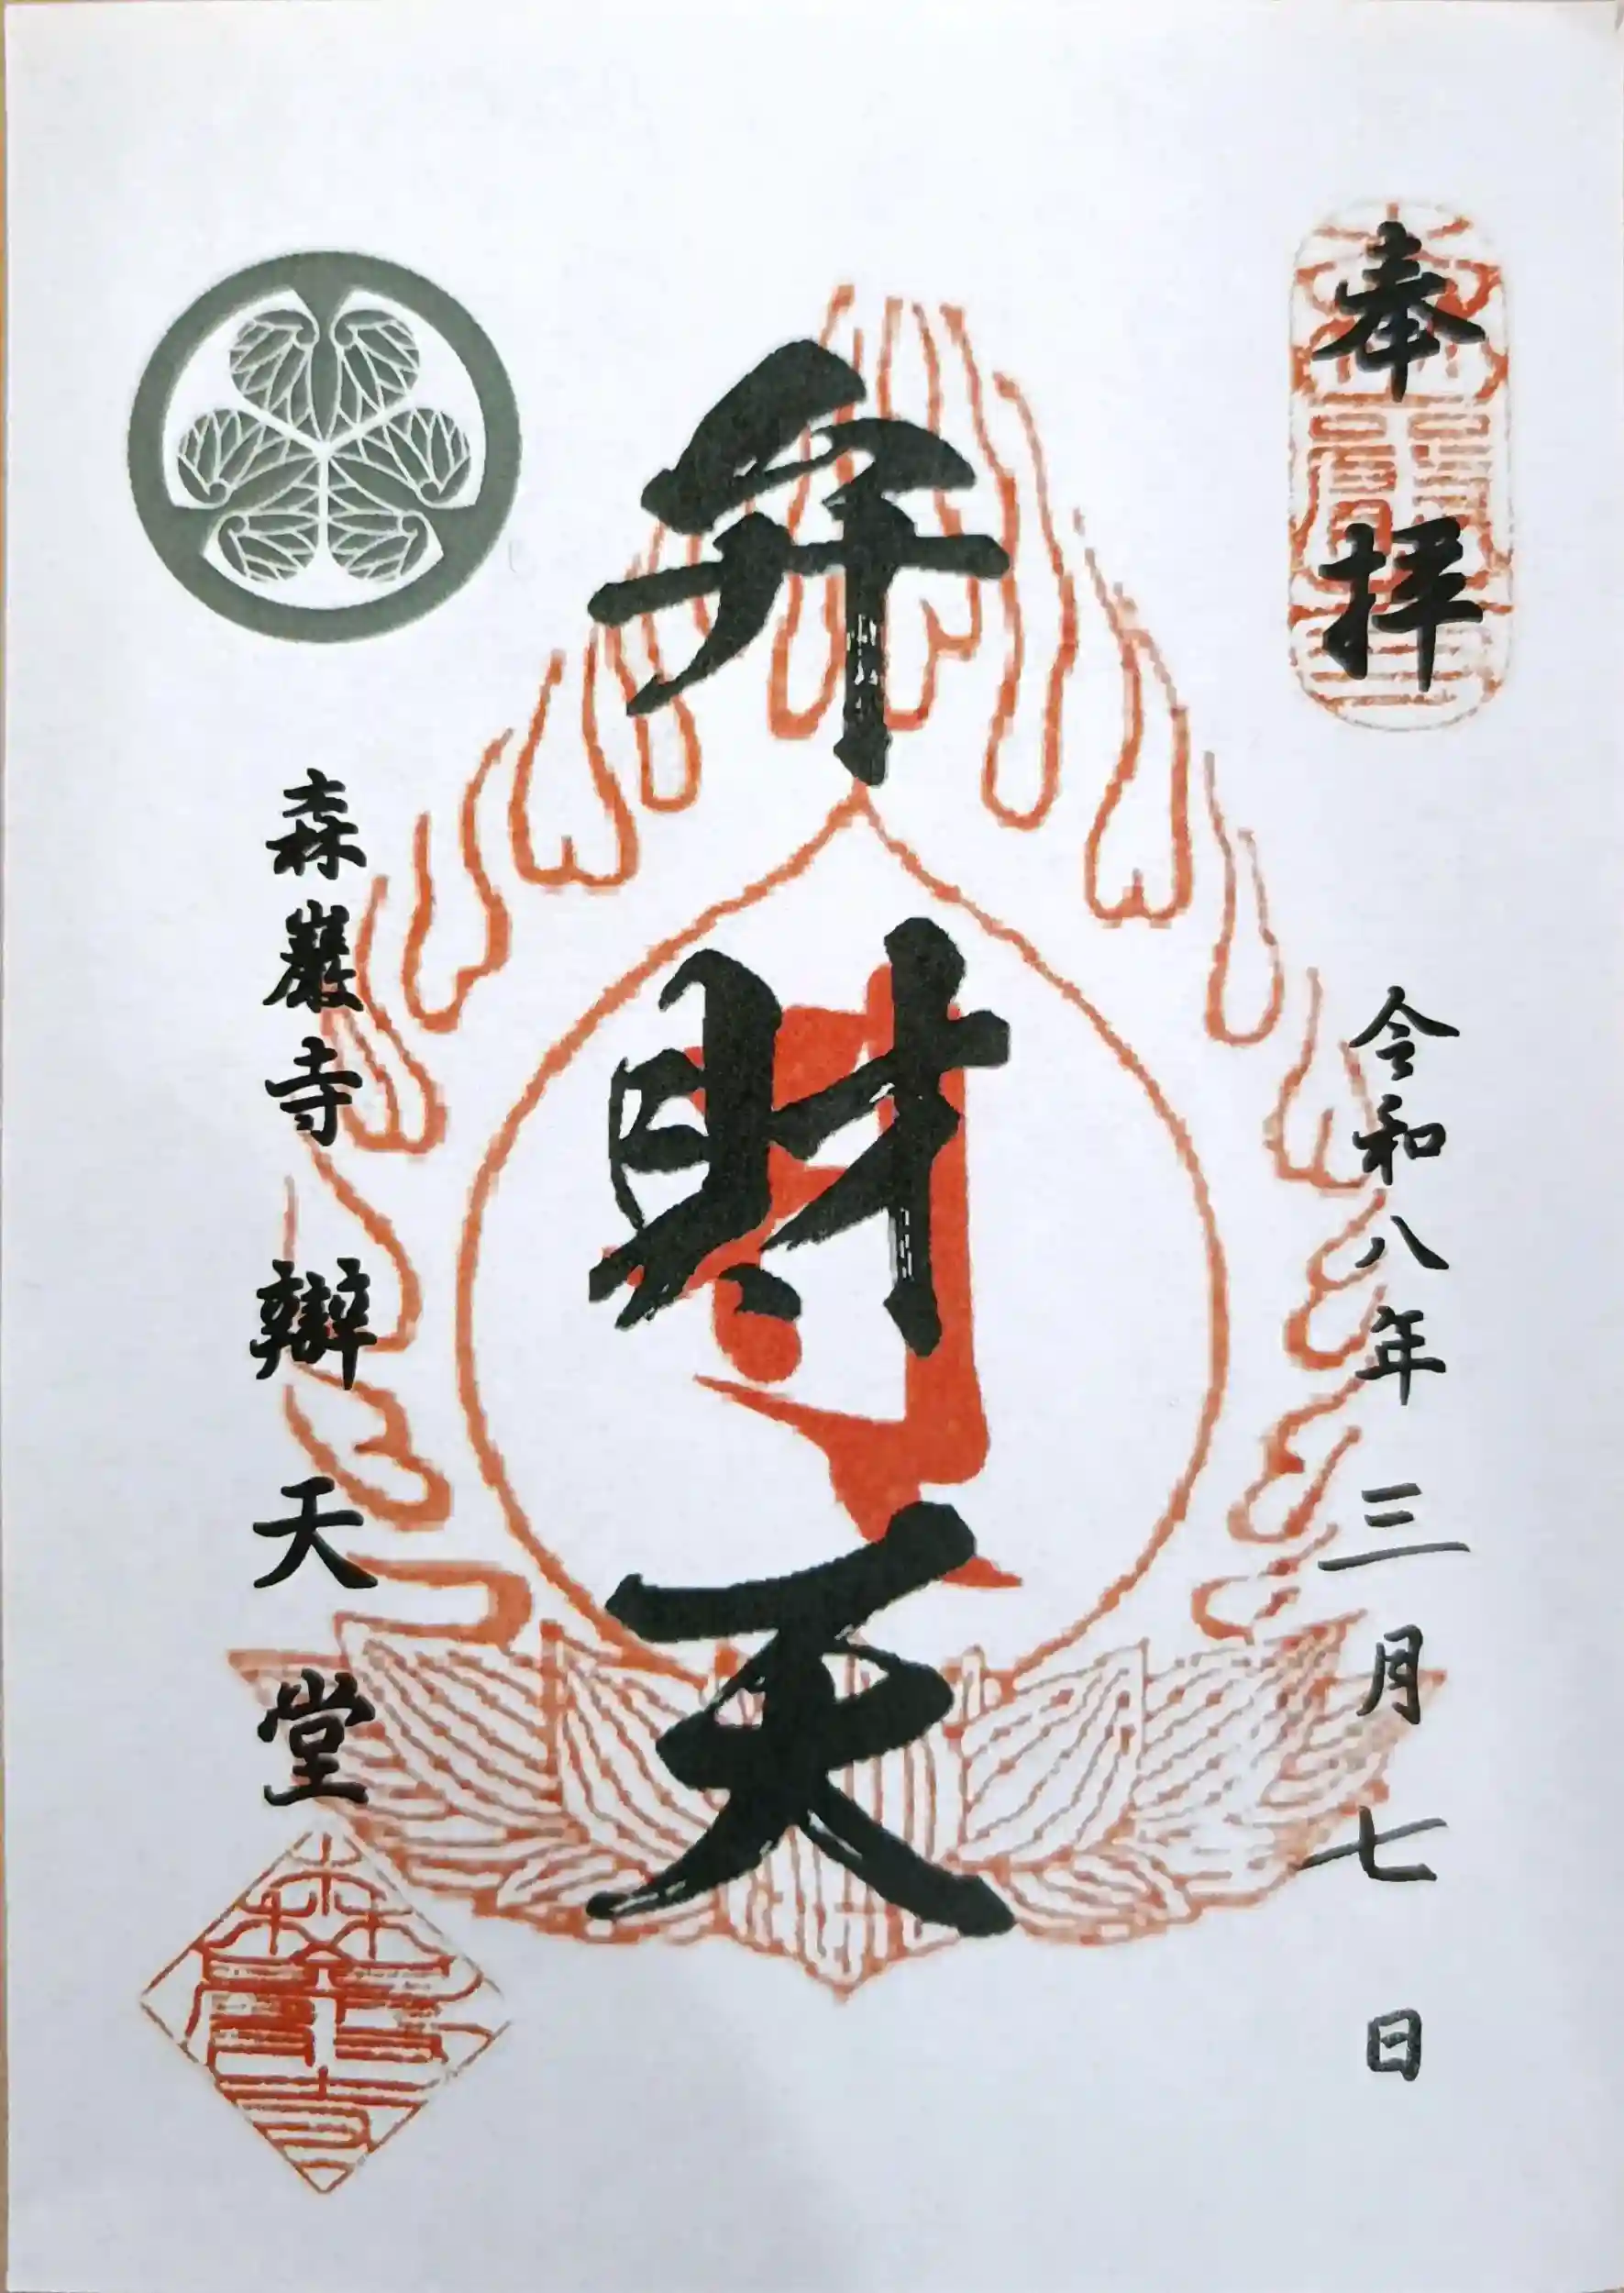 奉拝
令和八年三月七日
弁財天
森巖寺 辯天堂